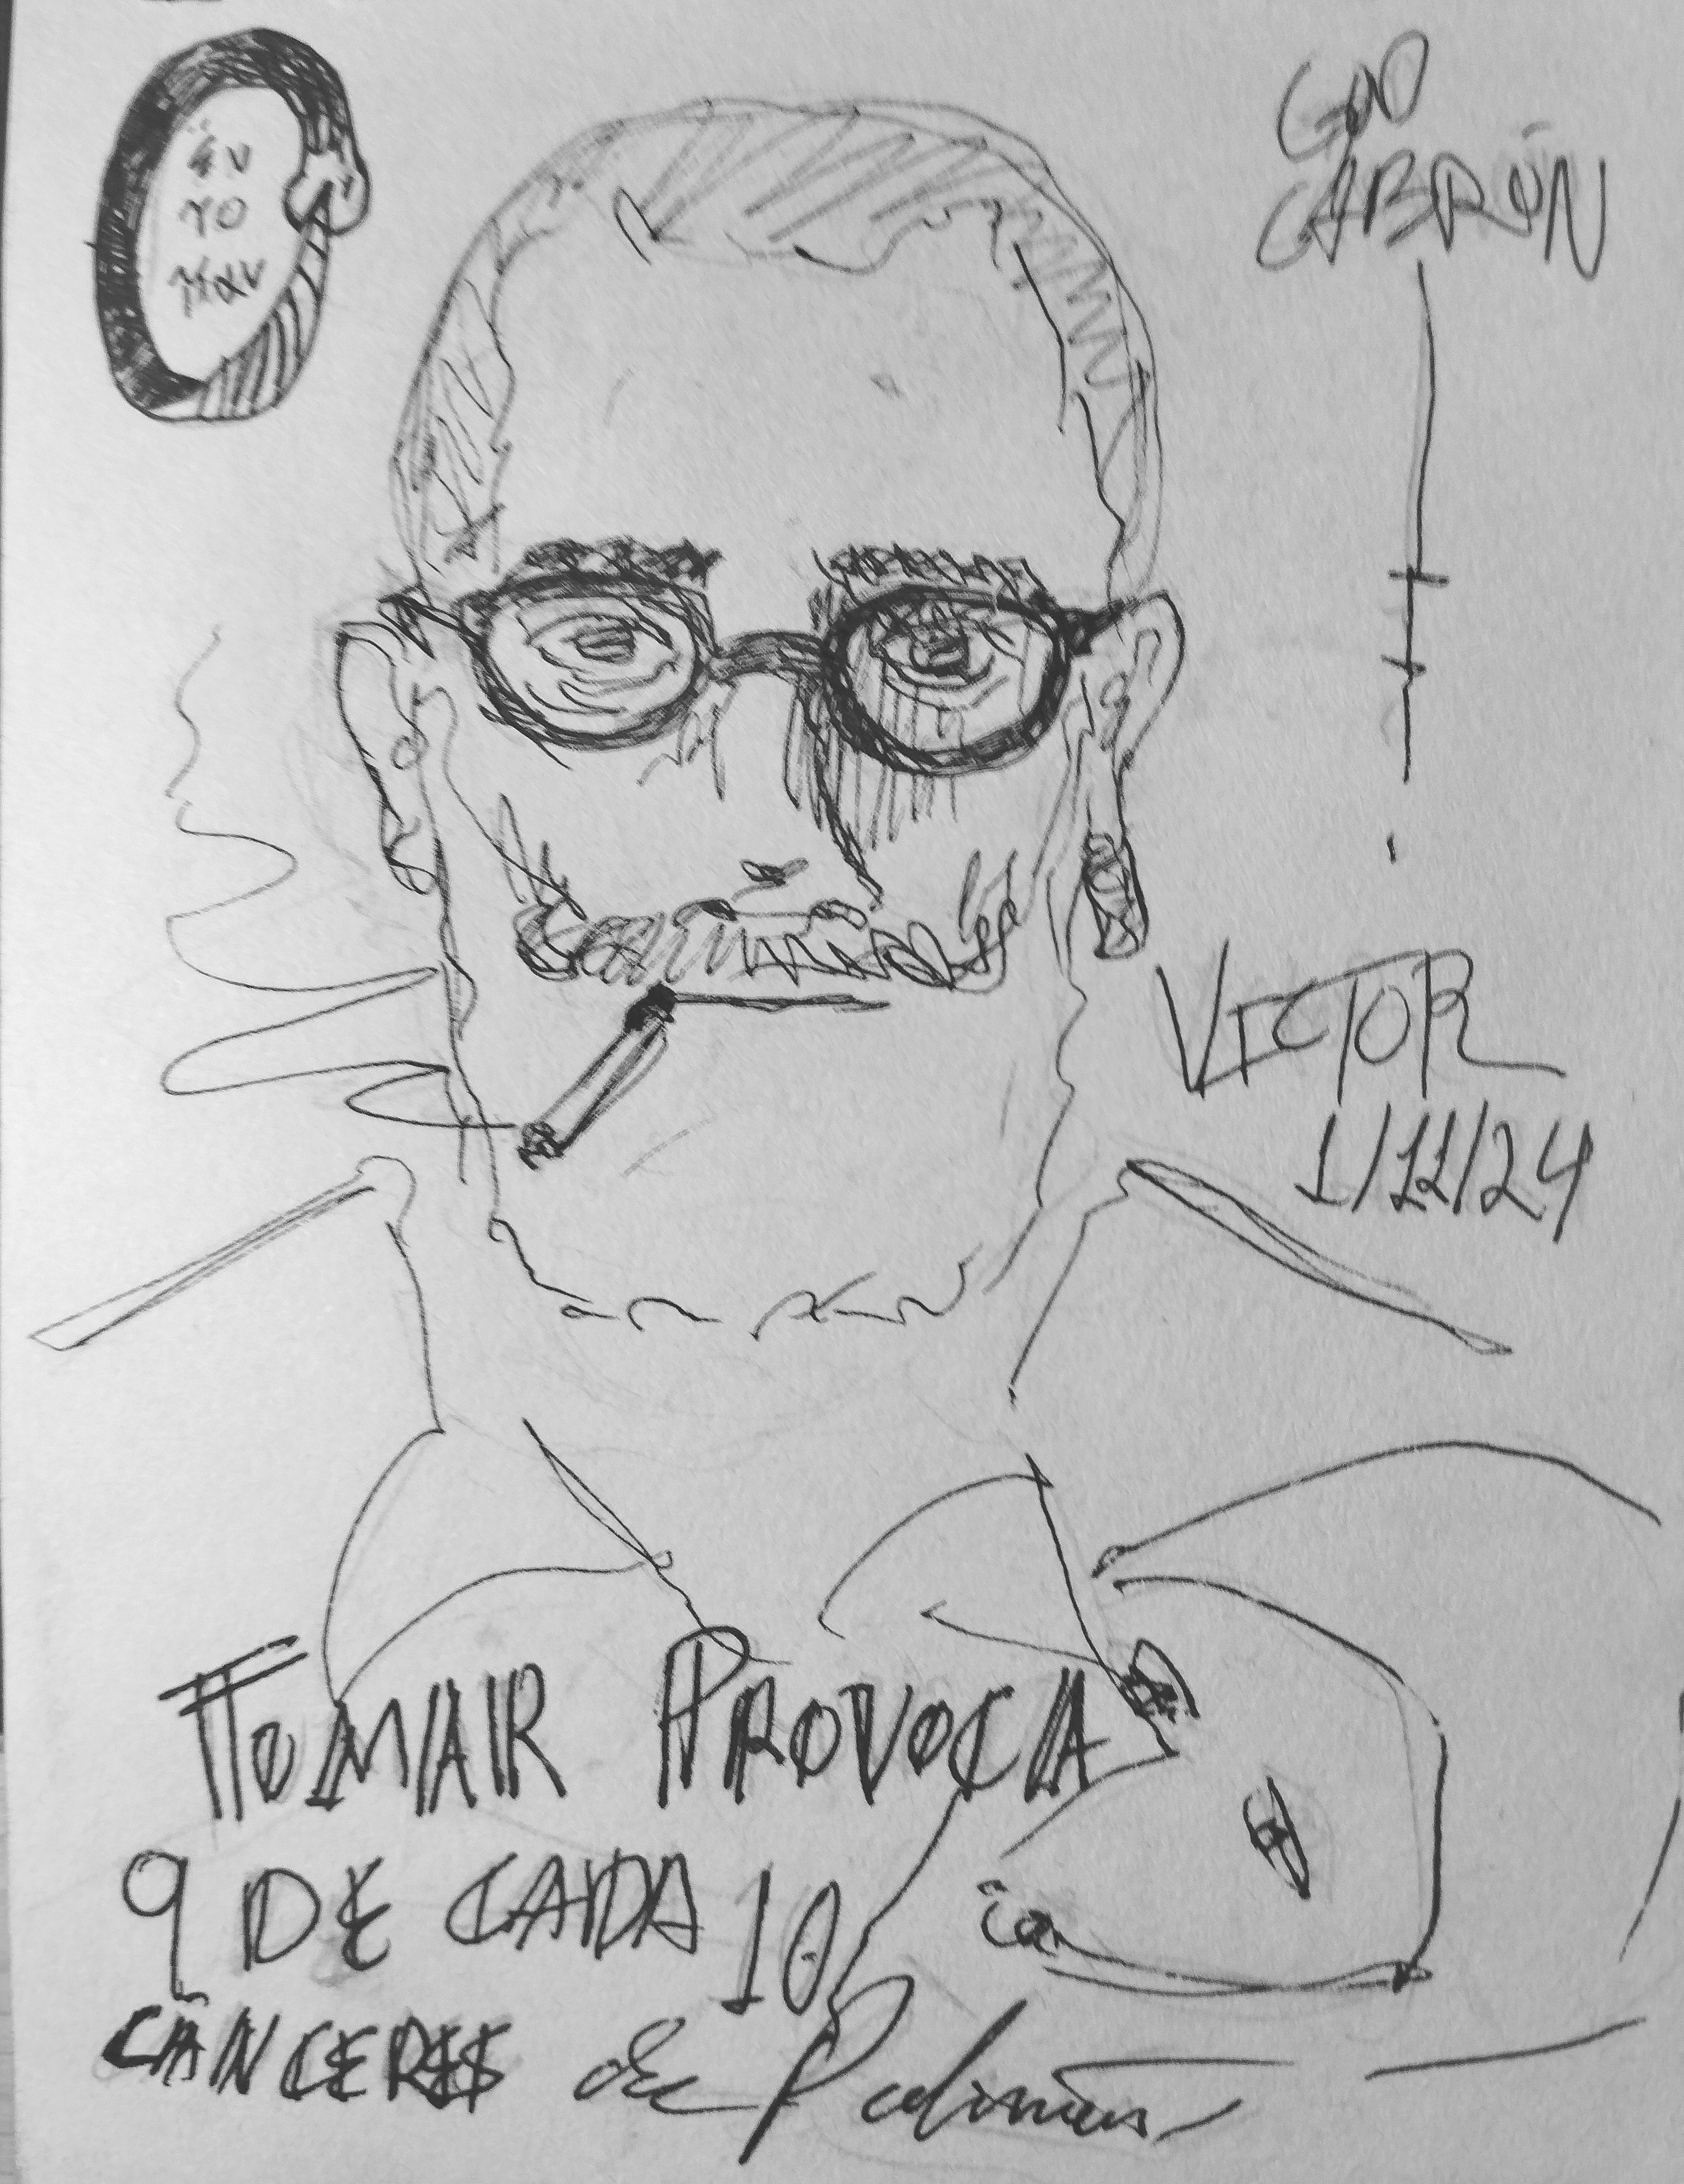 ἓν
το
παν
GOD
CABRÓN
VICTOR
1/11/24
FUMAR PROVOCA
9 DE CADA 10
CÁNCERES de Pulmón